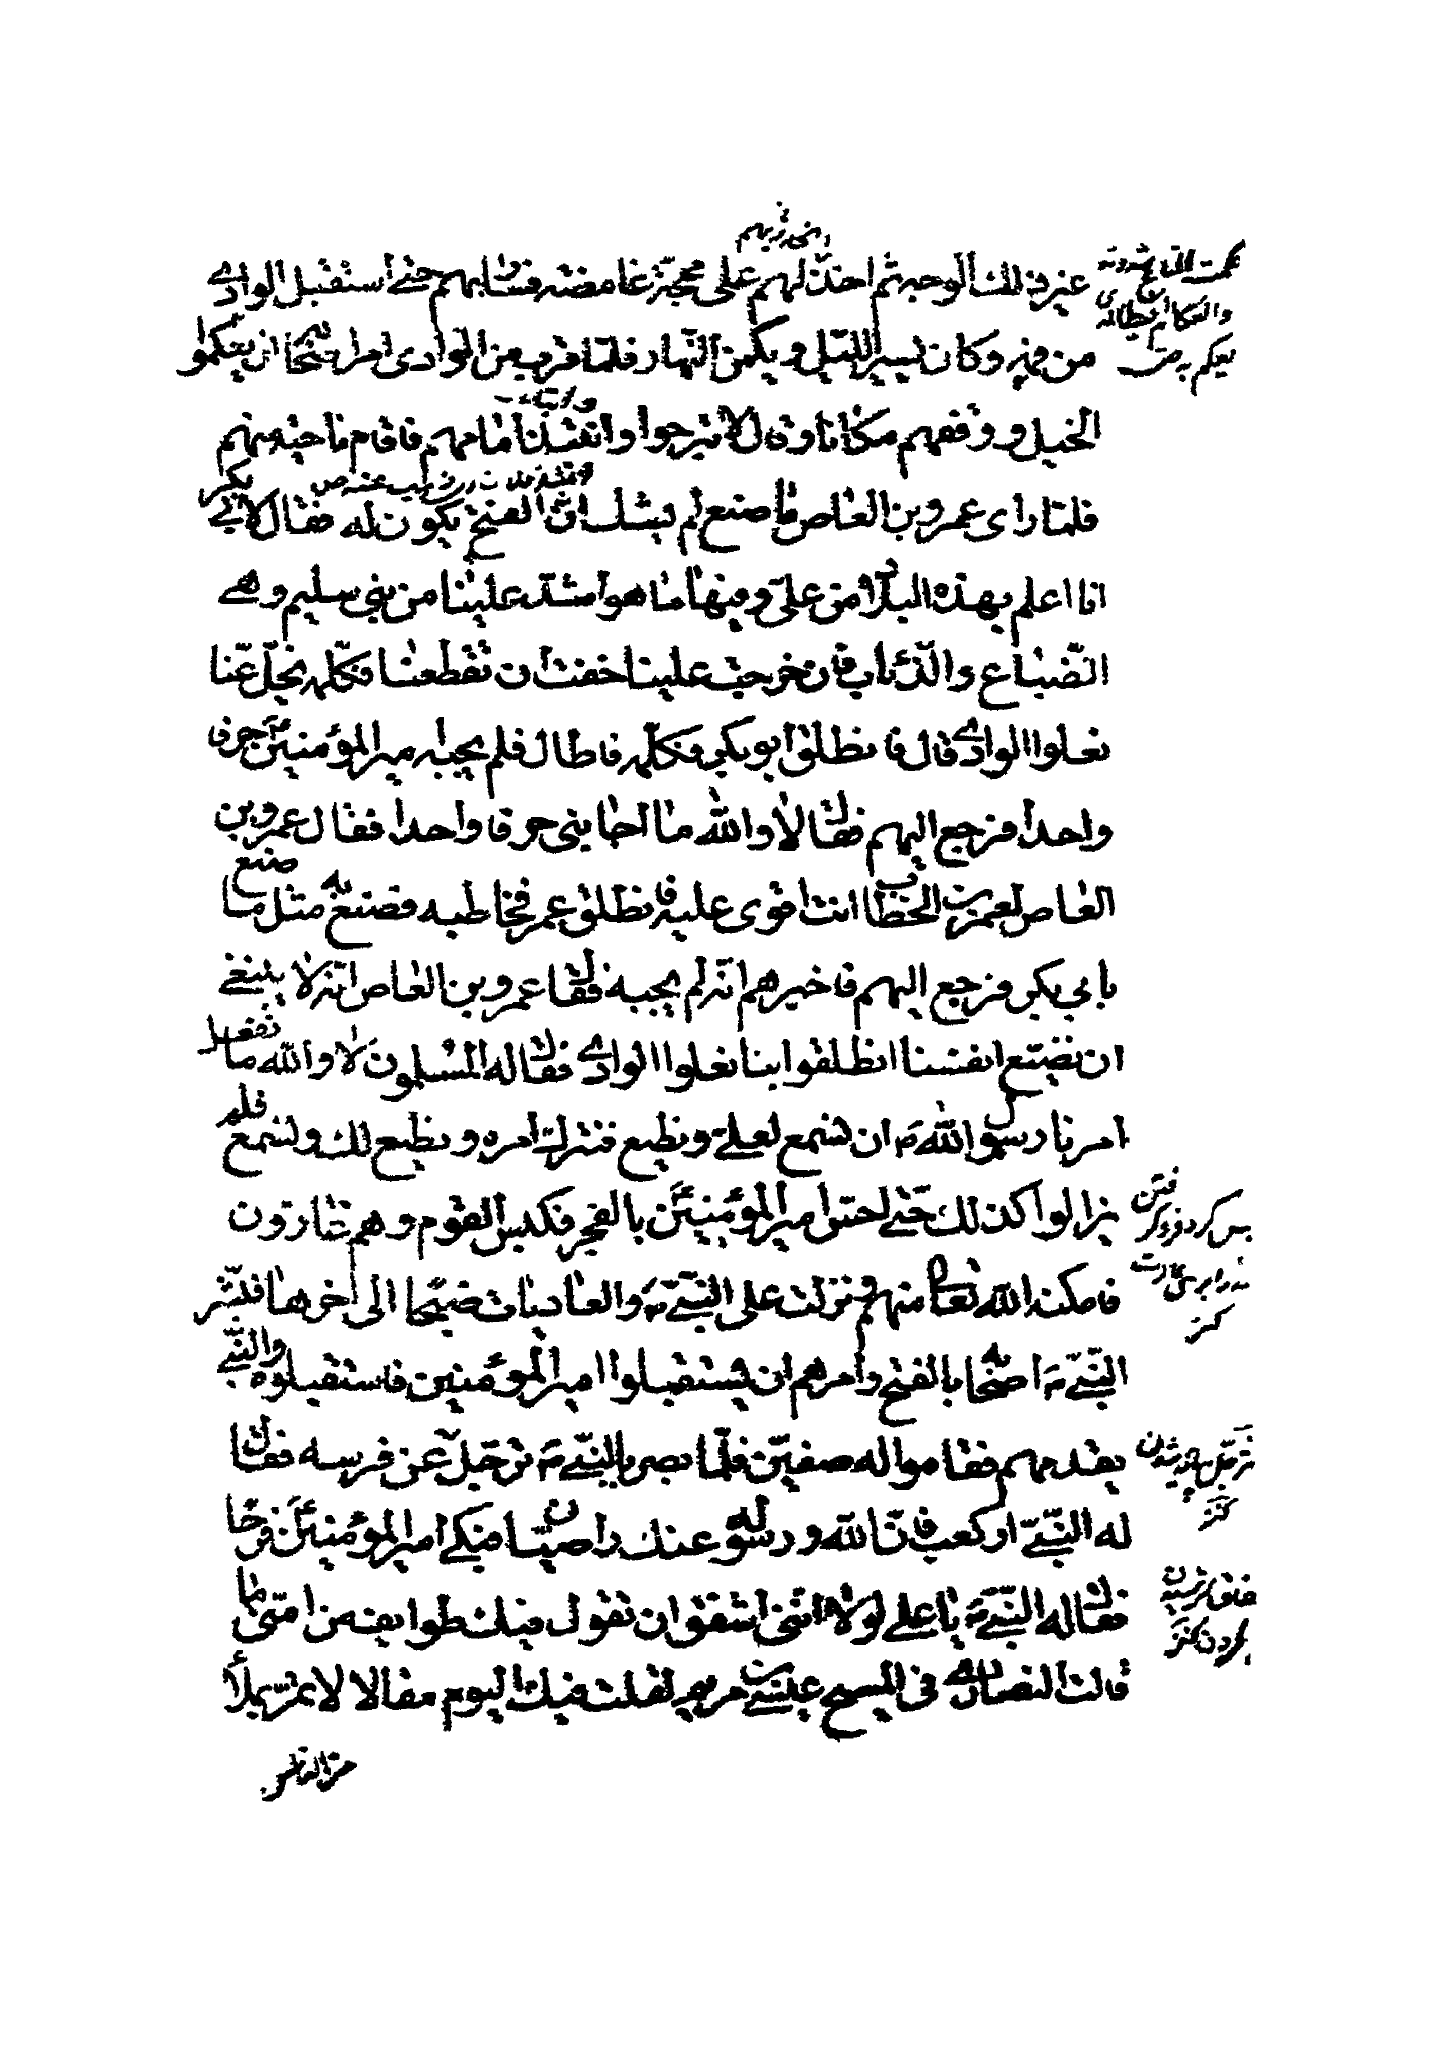 غير ذلك الوجه ثم اخذ لهم على محجة غامضة فسار بهم حتى استقبل الوادى
من فمه وكان يسير الليل ويكمن النهار فلما قرب من الوادى امر اصحابه ان يعكموا
الخيل ووقفهم مكانا وقال لا تبرحوا وانتبذ امامهم فاقام ناحية منهم
فلما راى عمرو بن العاص ما صنع لم يشك ان الفتح يكون له فقال لابى بكر
انا اعلم بهذه البلاد من على وفيها ما هو اشد علينا من بنى سليم وهى
الضباع والذئاب فان خرجت علينا خفت ان تقطعنا فكلمه يخل عنا
نعلوا الوادى قال فانطلق ابو بكر فكلمه فاطال فلم يجبه امير المؤمنين حرفا
واحدا فرجع اليهم فقال لا والله ما اجابنى حرفا واحدا فقال عمرو بن
العاص لعمر بن الخطاب انت اقوى عليه فانطلق عمر فخاطبه فصنع به مثل ما صنع
بابي بكر فرجع اليهم فاخبرهم انه لم يجبه فقال عمرو بن العاص انه لا ينبغى
ان نضيع انفسنا انطلقوا بنا نعلوا الوادى فقال له المسلمون لا والله ما نفعل
امرنا رسول الله ص ان نسمع لعلى ونطيع فنترك امره ونطيع لك ونسمع فلم
يزالوا كذلك حتى احس امير المؤمنين بالفجر فكبس القوم وهم غارون
فامكنه الله تعالى منهم ونزلت على النبى ص والعاديات ضبحا الى اخرها فبشر
النبى ص اصحابه بالفتح وامرهم ان يستقبلوا امير المؤمنين فاستقبلوه والنبى
يقدمهم فقاموا له صفين فلما بصر بالنبى ص ترجل عن فرسه فقال
له النبى اركب فان الله ورسوله عنك راضيان فبكى امير المؤمنين فرحا
فقال له النبى ص يا على لولا اننى اشفق ان تقول فيك طوايف من امتى ما
قالت النصارى فى المسيح عيسى بن مريم لقلت فيك اليوم مقالا لا تمر بملأ
من الناس